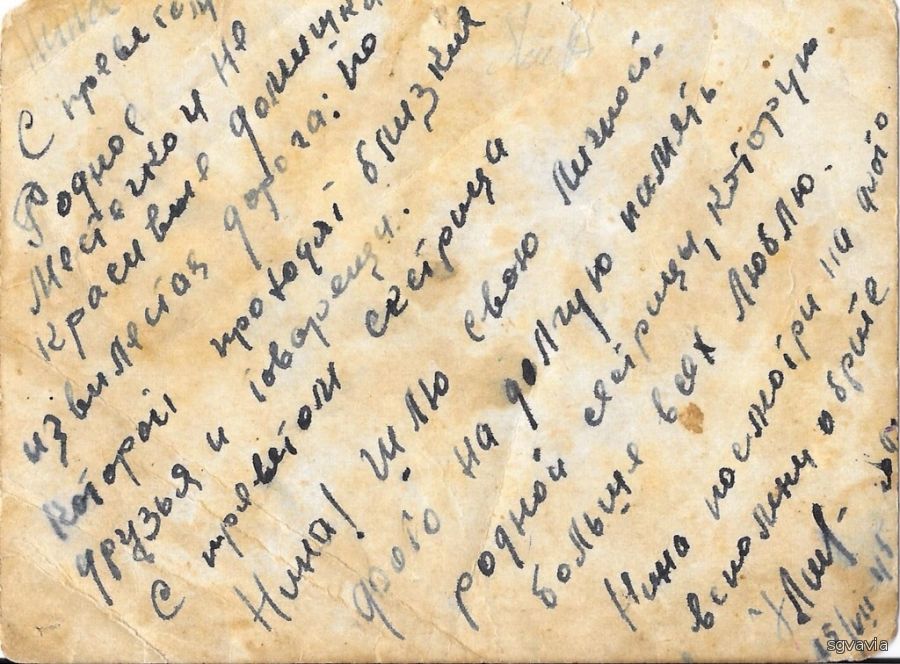 Нина
С приветом
Родное
местечко и не
красивые домишки
извилистая дорога: по
которой проходят близкие
друзья и товарищи.
С приветом сестрица
Нина! Шлю свою личной.
фото на долгую память
родной сестрице, которую
больше всех люблю.
Нина посмотри на фото
вспомни о брате
15/VII-45
sgvavia